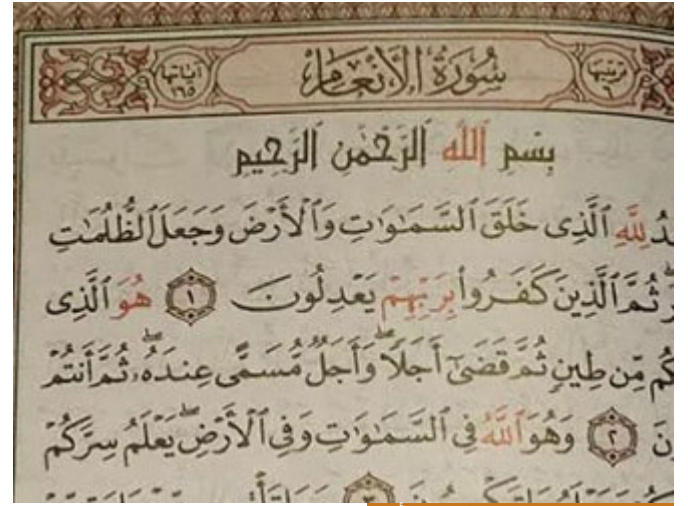 ترتيبها ٦ سُورَةُ الْأَنْعَامِ آياتها ١٦٥
بِسْمِ ٱللَّهِ ٱلرَّحْمَٰنِ ٱلرَّحِيمِ
لِلَّهِ ٱلَّذِى خَلَقَ ٱلسَّمَٰوَٰتِ وَٱلْأَرْضَ وَجَعَلَ ٱلظُّلُمَٰتِ
ثُمَّ ٱلَّذِينَ كَفَرُوا۟ بِرَبِّهِمْ يَعْدِلُونَ ١ هُوَ ٱلَّذِى
كُم مِّن طِينٍ ثُمَّ قَضَىٰٓ أَجَلًا ۖ وَأَجَلٌ مُّسَمًّى عِندَهُۥ ۖ ثُمَّ أَنتُمْ
نَ ٢ وَهُوَ ٱللَّهُ فِى ٱلسَّمَٰوَٰتِ وَفِى ٱلْأَرْضِ ۖ يَعْلَمُ سِرَّكُمْ